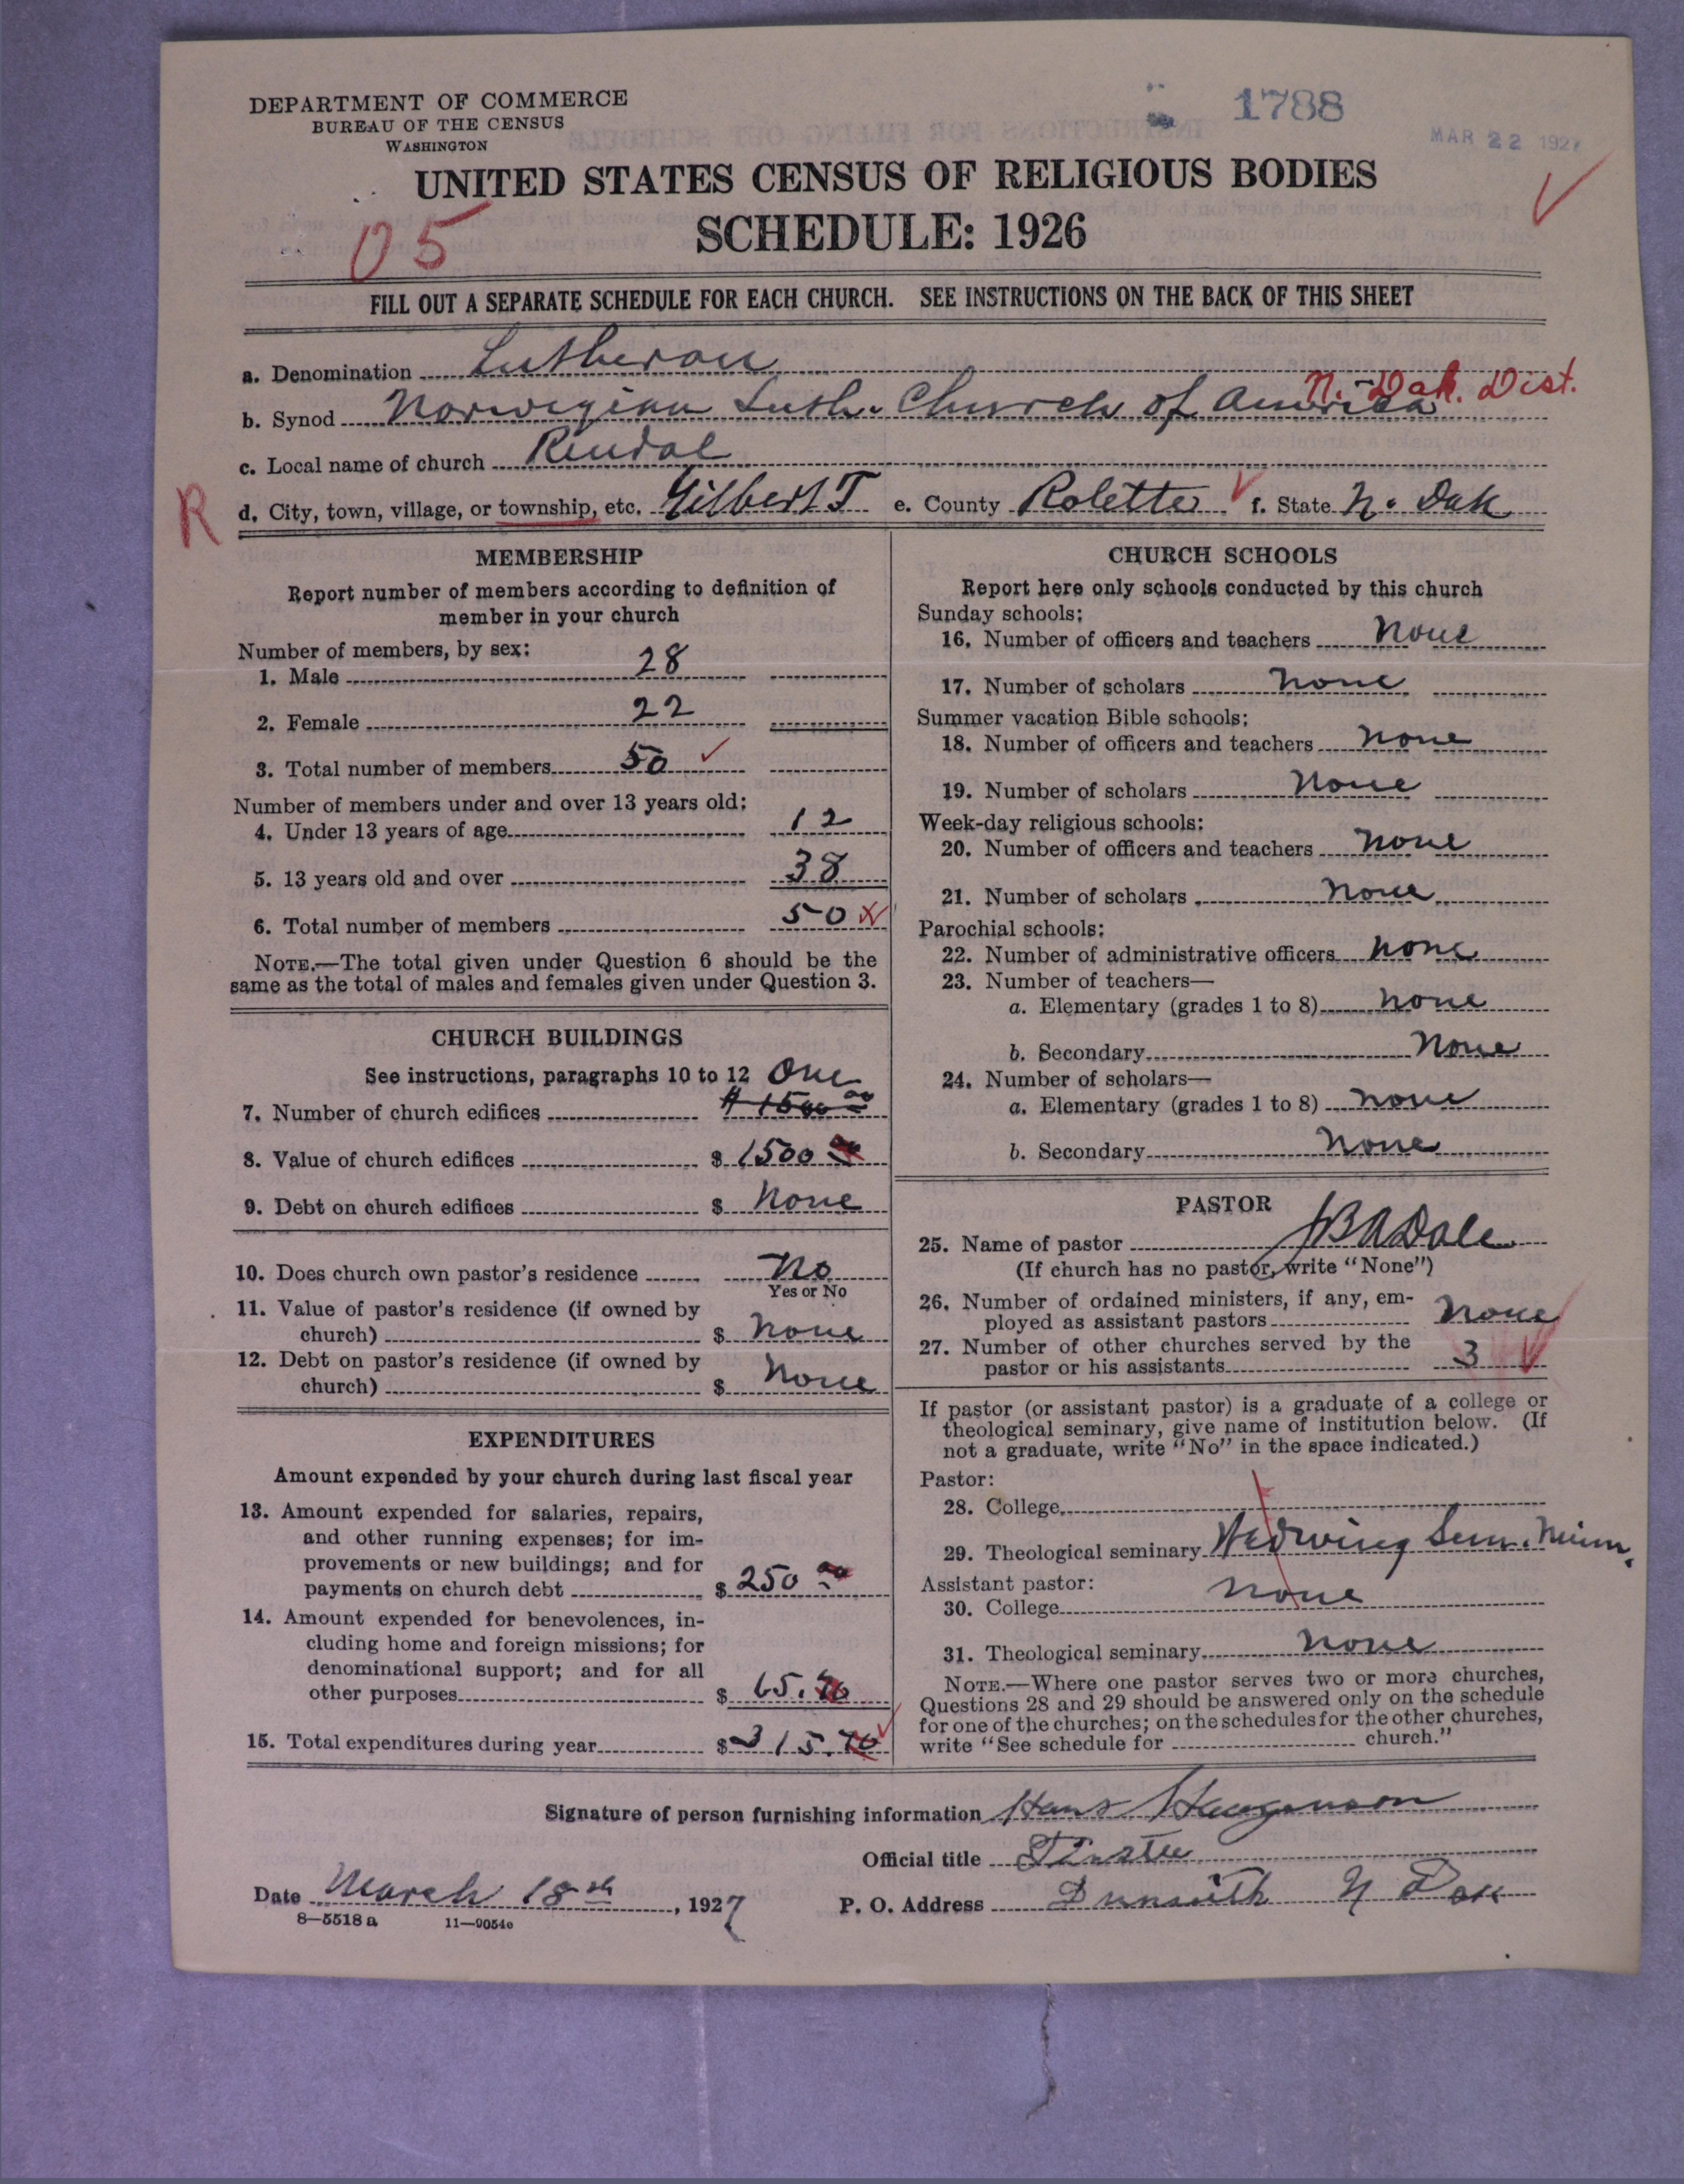 DEPARTMENT OF COMMERCE
BUREAU OF THE CENSUS
WASHINGTON
1788
MAR 22 1927
UNITED STATES CENSUS OF RELIGIOUS BODIES
SCHEDULE: 1926
05
FILL OUT A SEPARATE SCHEDULE FOR EACH CHURCH. SEE INSTRUCTIONS ON THE BACK OF THIS SHEET
a. Denomination Lutheran
N. Dak. Dist.
b. Synod Norwegian Luth. Church of America
c. Local name of church Rendal
R
d. City, town, village, or township, etc. Gilbert T e. County Rolette f. State N. Dak
MEMBERSHIP
Report number of members according to definition of
member in your church
Number of members, by sex:
1. Male 28
2. Female 22
3. Total number of members 50
Number of members under and over 13 years old:
4. Under 13 years of age 12
5. 13 years old and over 38
6. Total number of members 50
NOTE.—The total given under Question 6 should be the
same as the total of males and females given under Question 3.
CHURCH BUILDINGS
See instructions, paragraphs 10 to 12 One
7. Number of church edifices $1500 00
8. Value of church edifices $ 1500 00
9. Debt on church edifices $ None
10. Does church own pastor's residence No
Yes or No
11. Value of pastor's residence (if owned by
church) $ None
12. Debt on pastor's residence (if owned by
church) $ None
EXPENDITURES
Amount expended by your church during last fiscal year
13. Amount expended for salaries, repairs,
and other running expenses; for im-
provements or new buildings; and for
payments on church debt $ 250 00
14. Amount expended for benevolences, in-
cluding home and foreign missions; for
denominational support; and for all
other purposes $ 65.70
15. Total expenditures during year $ 315.70
CHURCH SCHOOLS
Report here only schools conducted by this church
Sunday schools:
16. Number of officers and teachers None
17. Number of scholars None
Summer vacation Bible schools:
18. Number of officers and teachers None
19. Number of scholars None
Week-day religious schools:
20. Number of officers and teachers None
21. Number of scholars None
Parochial schools:
22. Number of administrative officers None
23. Number of teachers—
a. Elementary (grades 1 to 8) None
b. Secondary None
24. Number of scholars—
a. Elementary (grades 1 to 8) None
b. Secondary None
PASTOR
25. Name of pastor JBADale
(If church has no pastor, write "None")
26. Number of ordained ministers, if any, em-
ployed as assistant pastors None
27. Number of other churches served by the
pastor or his assistants 3
If pastor (or assistant pastor) is a graduate of a college or
theological seminary, give name of institution below. (If
not a graduate, write "No" in the space indicated.)
Pastor:
28. College
29. Theological seminary Redwing Sem. Minn.
Assistant pastor:
30. College None
31. Theological seminary None
NOTE.—Where one pastor serves two or more churches,
Questions 28 and 29 should be answered only on the schedule
for one of the churches; on the schedules for the other churches,
write "See schedule for church."
Signature of person furnishing information Hans
Official title Trustee
Date March 18th, 1927 P. O. Address Dunseith N Dak
8—5518 a 11—9054e